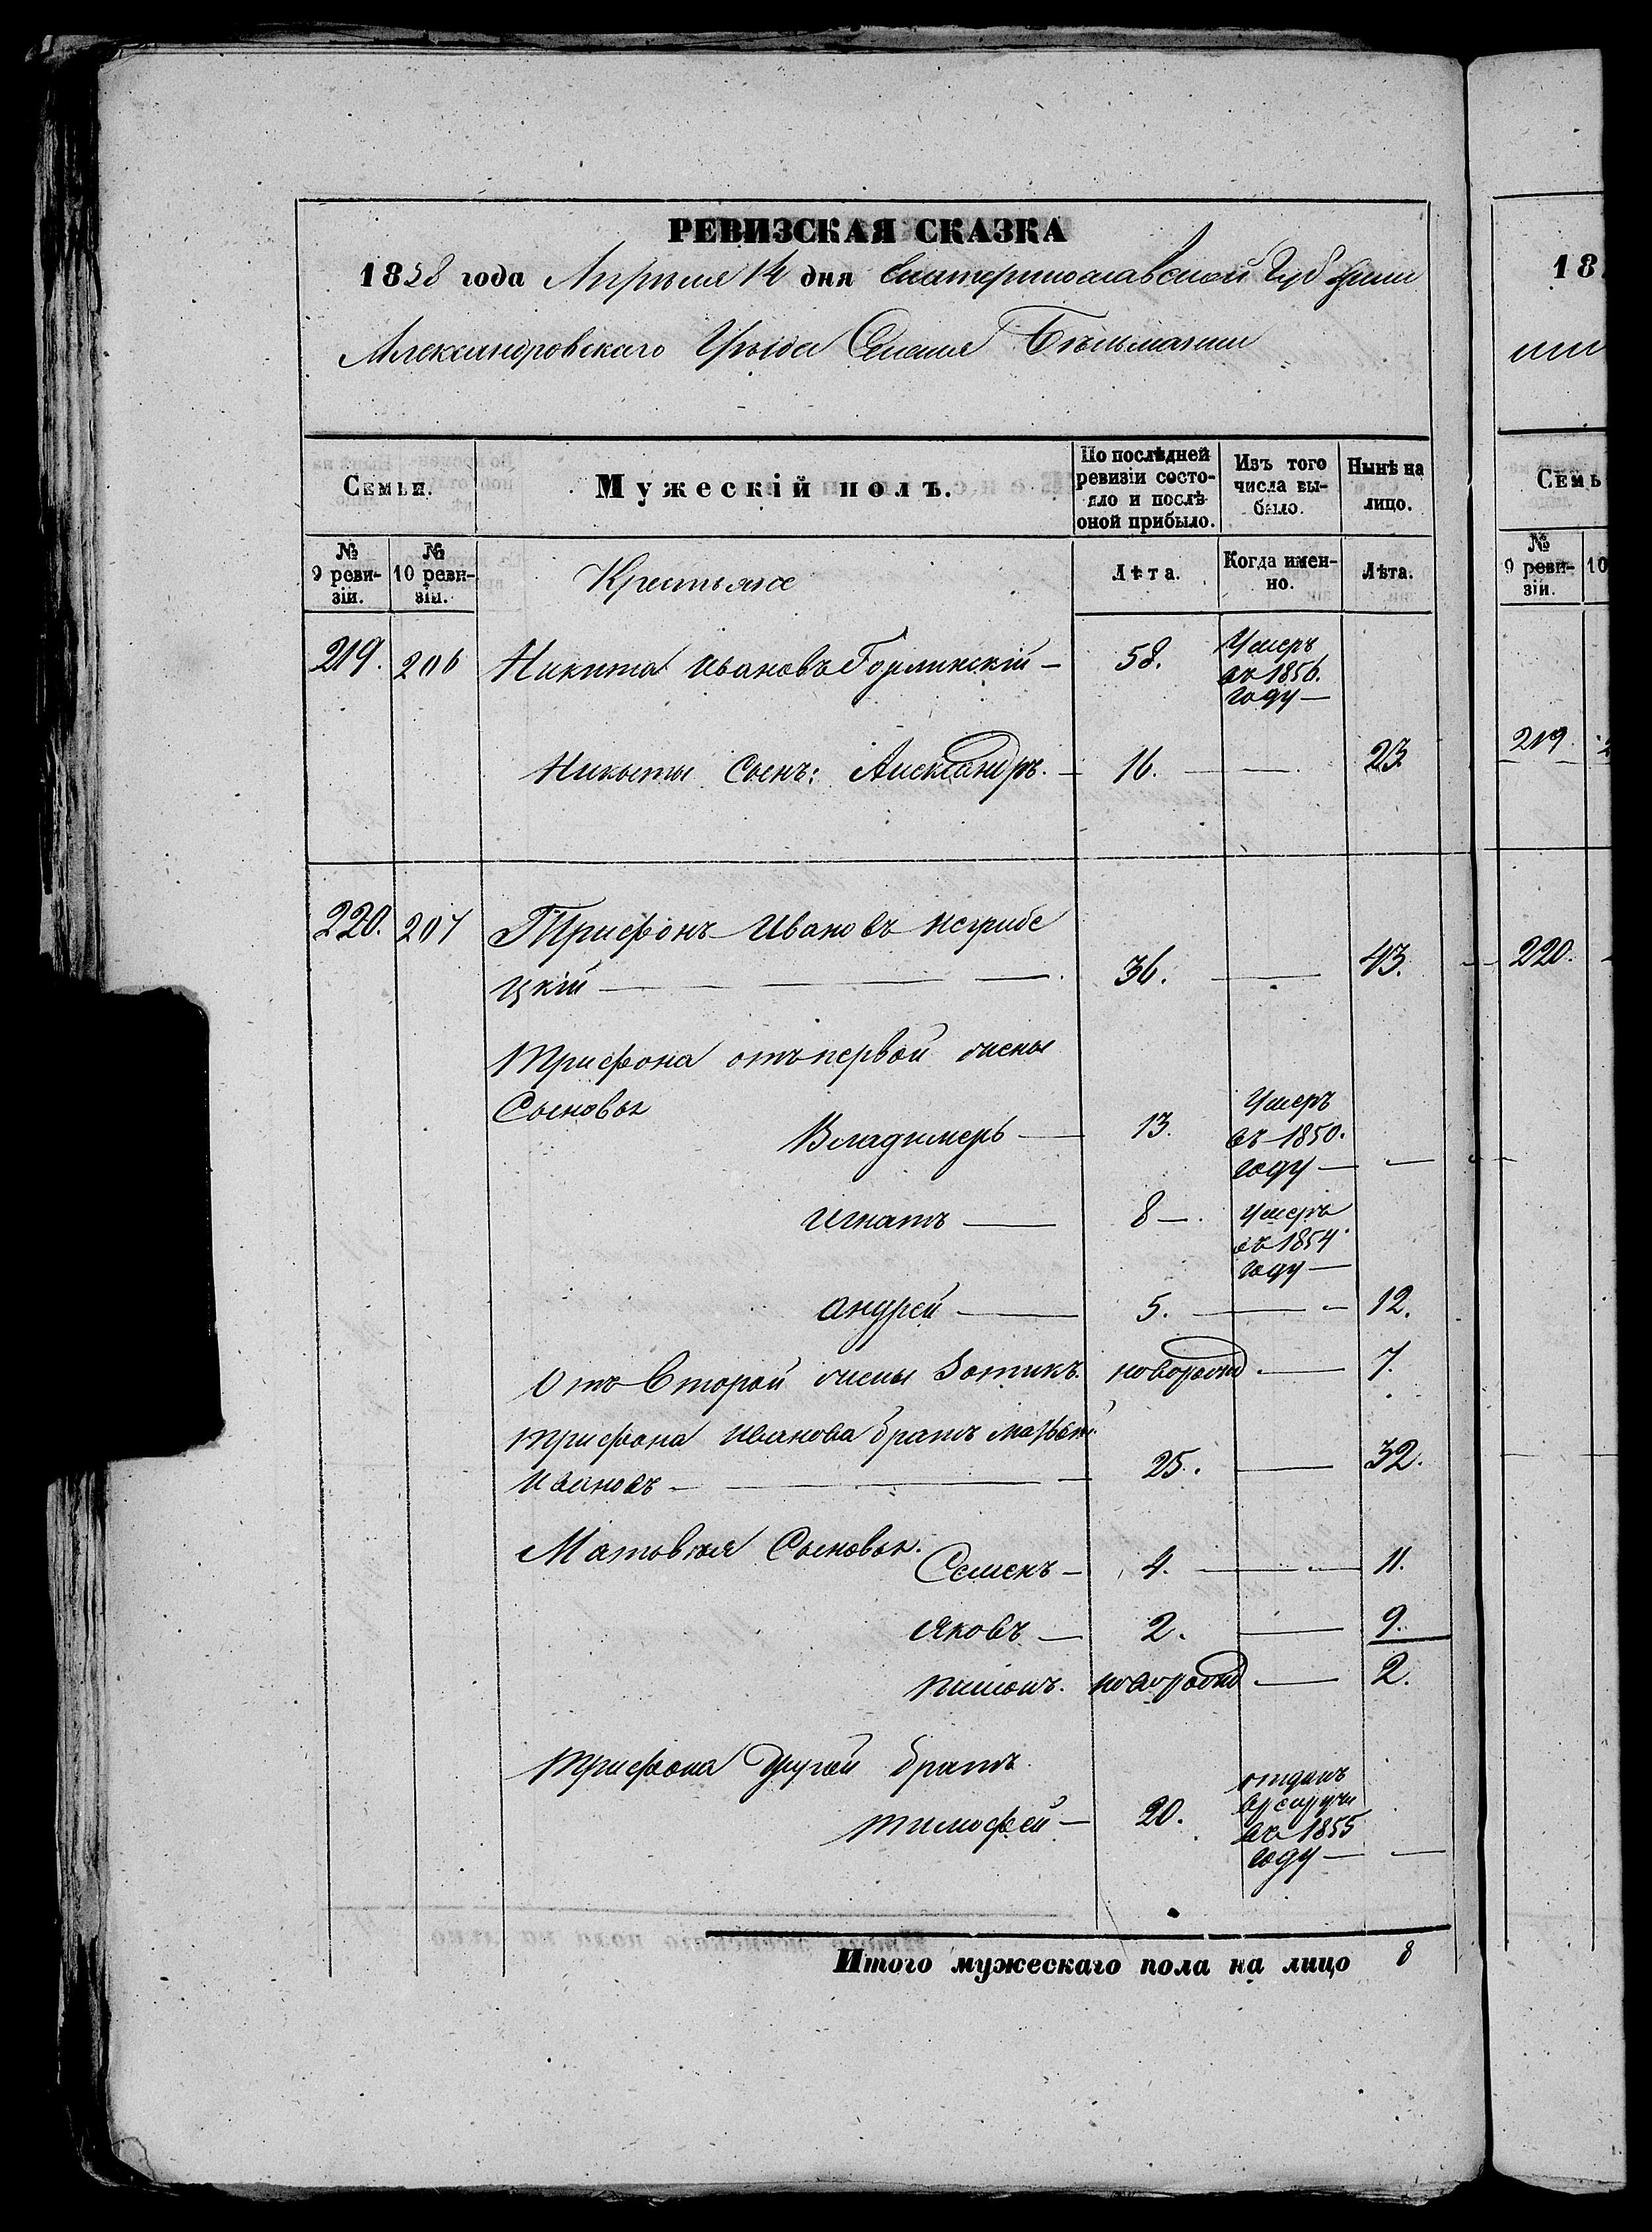 РЕВИЗСКАЯ СКАЗКА
1858 года Апрѣля 14 дня Екатеринославской Губерніи
Александровскаго Уѣзда Селенія Бѣльманки
Семьи.
Мужескій полъ.
По послѣдней ревизіи состояло и послѣ оной прибыло.
Изъ того числа выбыло.
Нынѣ на лицо.
№ 9 ревизіи.
№ 10 ревизіи.
Крестьяне
Лѣта.
Когда именно.
Лѣта.
219. 206 Никита Ивановъ Горлинскій — 58. Умеръ въ 1856. году —
Никиты Сынъ: Александръ. — 16. — 23
220. 207 Трифонъ Ивановъ Негрибе
цкій — 36. — 43.
Трифона отъ первой жены
Сыновья
Владимеръ — 13. Умеръ въ 1850. году — —
Игнатъ — 8 —. Умеръ въ 1854. году —
Андрей — 5. — 12.
Отъ Второй жены Зотикъ. новорожд — 7.
Трифона Иванова братъ Матвѣй
Ивановъ — 25. — 32.
Матвѣя Сыновья.
Семенъ — 4. — 11.
Яковъ — 2. — 9.
Пимонъ. новорожд — 2.
Трифона Другой братъ
Тимофей — 20. отданъ въ 1855 году — —
Итого мужескаго пола на лицо 8
18
Семь
№ 9 ревизіи.
10
219.
220.